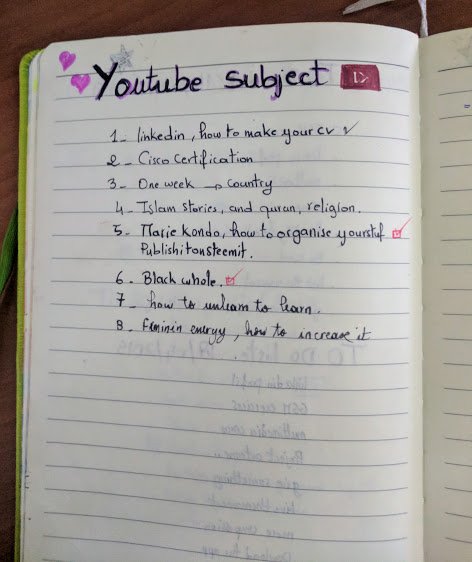 Youtube subject
1- linkedin, how to make your cv ✓
2- Cisco Certification
3- One week → Country
4- Islam stories, and quran, religion.
5- Marie Kondo, how to organise yourstuf
Publishitonsteemit.
6- Black whole.
7- how to unlearn to learn.
8- Feminin energy, how to increase it